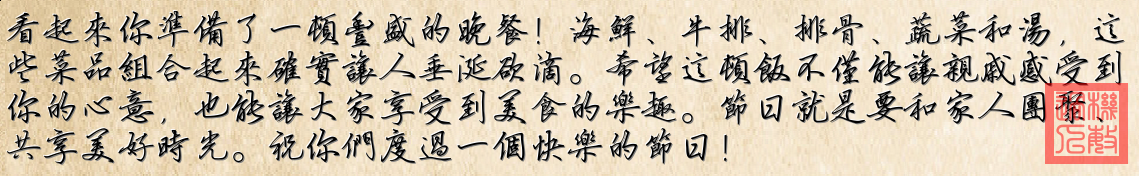 看起來你準備了一頓豐盛的晚餐！海鮮、牛排、排骨、蔬菜和湯，這
些菜品組合起來確實讓人垂涎欲滴。希望這頓飯不僅能讓親戚感受到
你的心意，也能讓大家享受到美食的樂趣。節日就是要和家人團聚、
共享美好時光。祝你們度過一個快樂的節日！